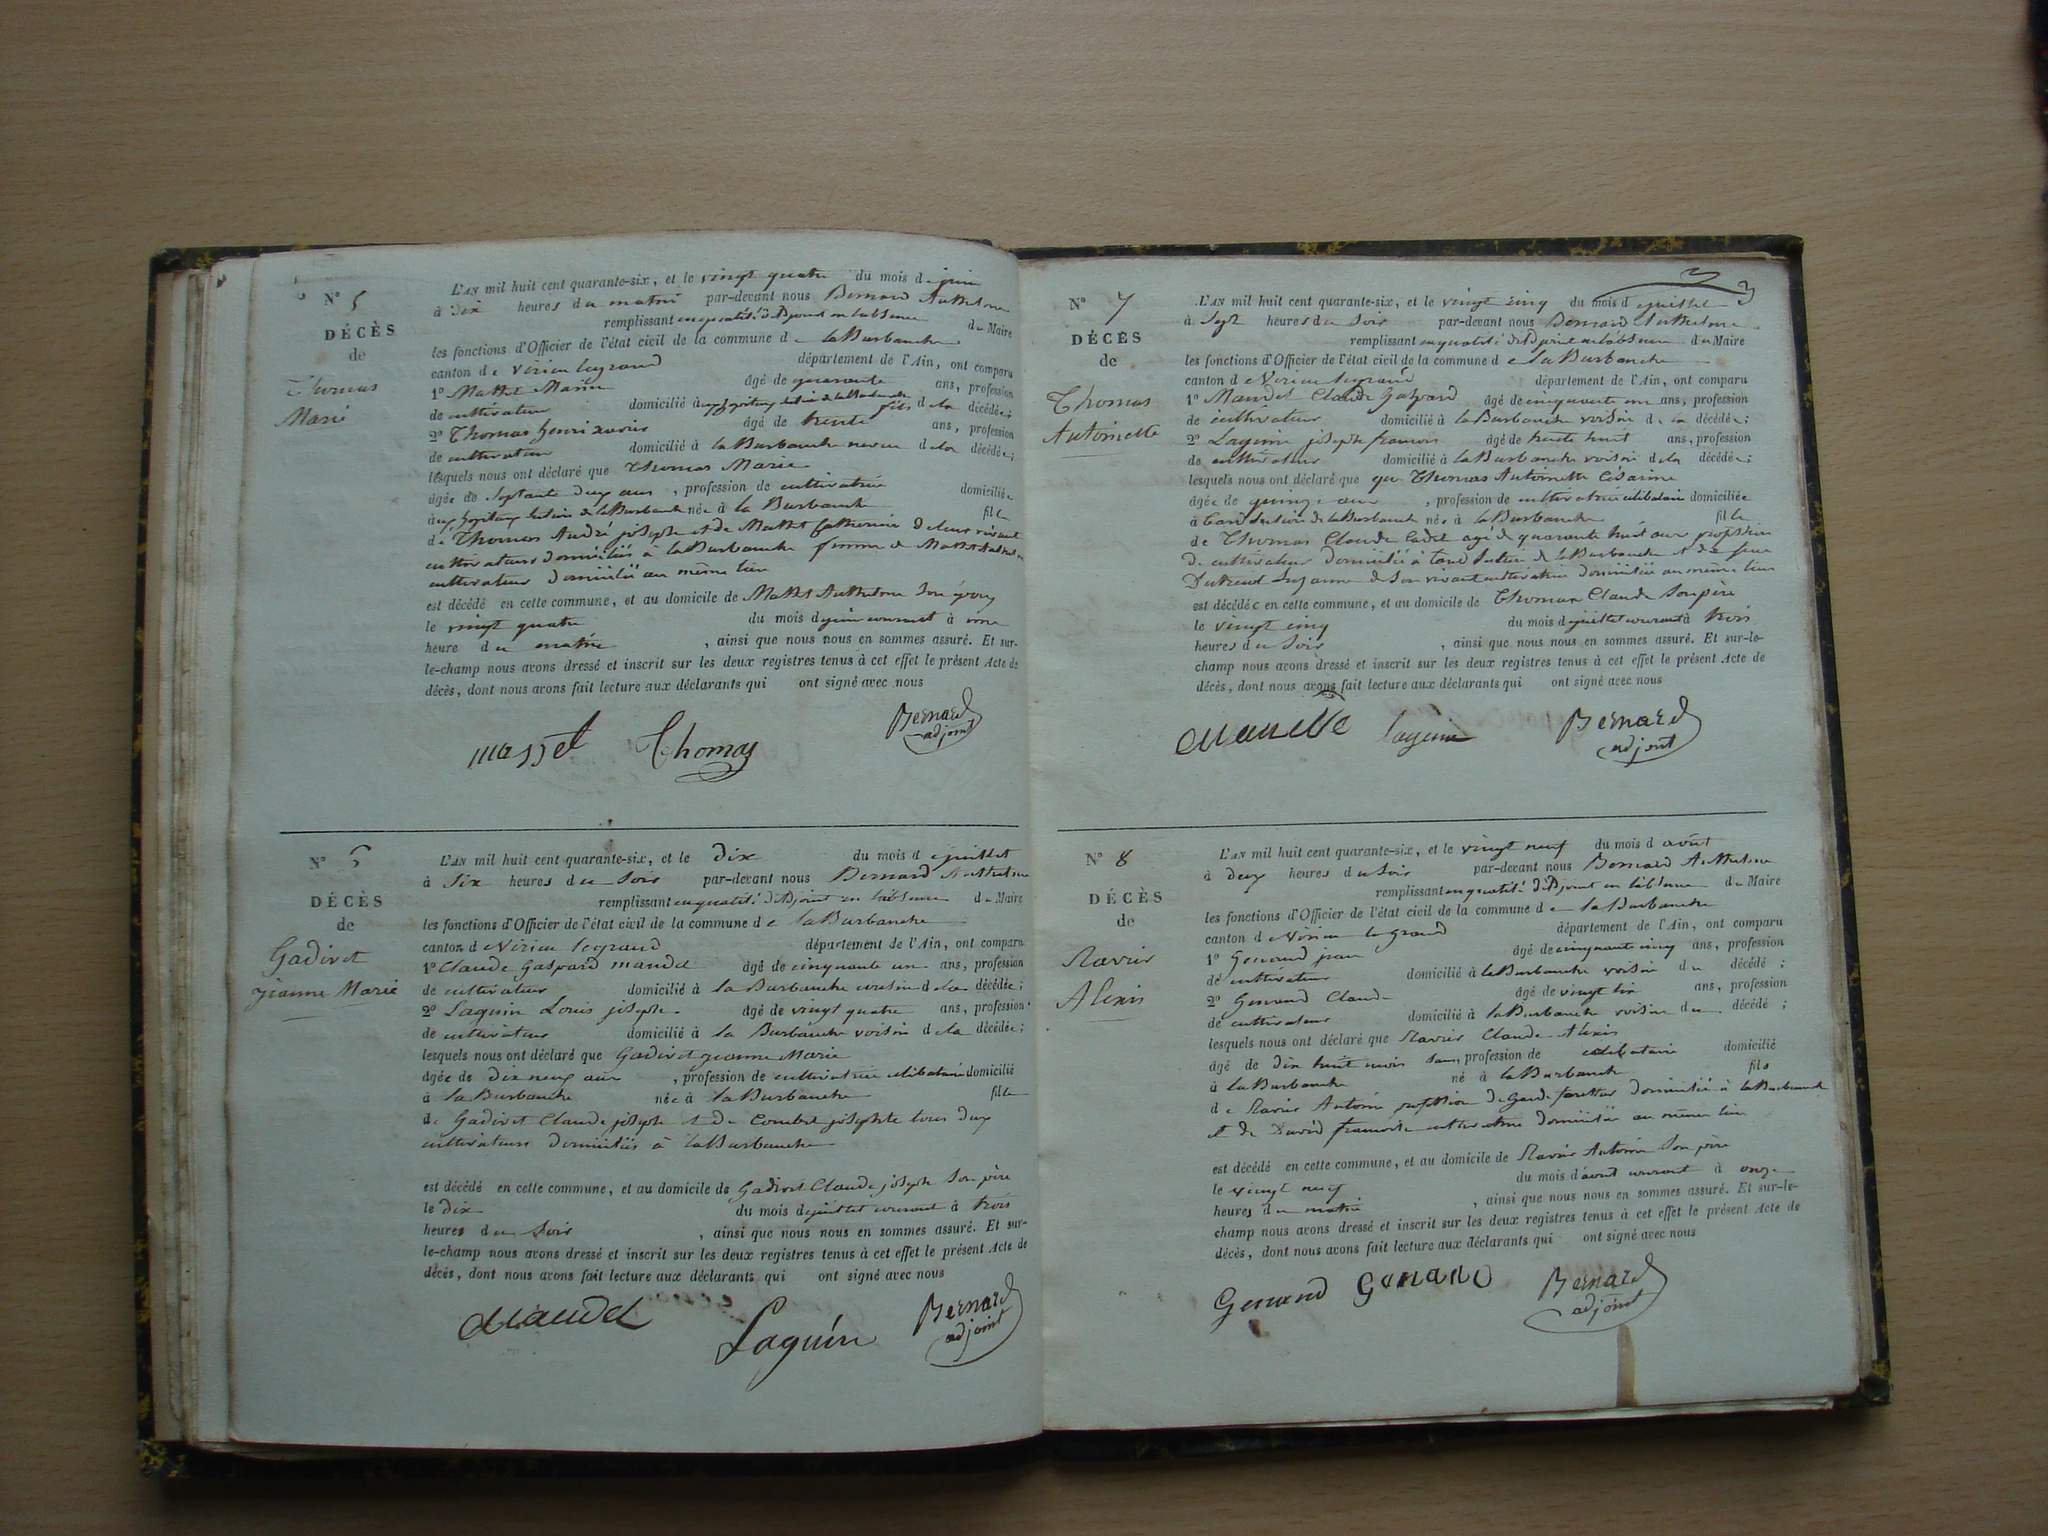 N° 5
DÉCÈS
de
Thomas
Marie
L'AN mil huit cent quarante-six, et le vingt quatre du mois de juin
à dix heures du matin par-devant nous Bernard Anthelme
remplissant en qualité d'Adjoint en l'absence du Maire
les fonctions d'Officier de l'état civil de la commune de la Burbanche
canton de Virieu legrand département de l'Ain, ont comparu
1° Masset Marin âgé de quarante ans, profession
de cultivateur domicilié à la Burbanche fils de la décédée;
2° Thomas henri xavier âgé de trente ans, profession
de cultivateur domicilié à la Burbanche neveu de la décédée;
lesquels nous ont déclaré que Thomas Marie
âgée de septante deux ans, profession de cultivatrice domiciliée
de la Burbanche née à la Burbanche fille
de Thomas André joseph et de Masset Catherine de leur vivant
cultivateurs domiciliés à la Burbanche femme de Masset
cultivateur domicilié au même lieu
est décédé en cette commune, et au domicile de Masset Anthelme son époux
le vingt quatre du mois de juin courant à une
heure du matin, ainsi que nous nous en sommes assuré. Et sur-
le-champ nous avons dressé et inscrit sur les deux registres tenus à cet effet le présent Acte de
décès, dont nous avons fait lecture aux déclarants qui ont signé avec nous
masset Thomas Bernard
adjoint
N°
DÉCÈS
de
Gadivet
jeanne Marie
L'AN mil huit cent quarante-six, et le dix du mois de juillet
à six heures du soir par-devant nous Bernard Anthelme
remplissant en qualité d'Adjoint en l'absence du Maire
les fonctions d'Officier de l'état civil de la commune de la Burbanche
canton de Virieu legrand département de l'Ain, ont comparu
1° Claude Gaspard mandet âgé de cinquante un ans, profession
de cultivateur domicilié à la Burbanche voisin de la décédée;
2° Laguin Louis joseph âgé de vingt quatre ans, profession
de cultivateur domicilié à la Burbanche voisin de la décédée;
lesquels nous ont déclaré que Gadivet jeanne Marie
âgée de dix neuf ans, profession de cultivatrice célibataire domicilié
à la Burbanche née à la Burbanche fille
de Gadivet Claude joseph et de Combet josephte tous deux
cultivateurs domiciliés à la Burbanche
est décédé en cette commune, et au domicile de Gadivet Claude joseph son père
le dix du mois de juillet courant à trois
heures du soir, ainsi que nous nous en sommes assuré. Et sur-
le-champ nous avons dressé et inscrit sur les deux registres tenus à cet effet le présent Acte de
décès, dont nous avons fait lecture aux déclarants qui ont signé avec nous
Mandet Laguin Bernard
adjoint
N° 7
DÉCÈS
de
Thomas
Antoinette
L'AN mil huit cent quarante-six, et le vingt cinq du mois de juillet
à sept heures du soir par-devant nous Bernard Anthelme
remplissant en qualité d'Adjoint en l'absence du Maire
les fonctions d'Officier de l'état civil de la commune de la Burbanche
canton de Virieu legrand département de l'Ain, ont comparu
1° Mandet Claude Gaspard âgé de cinquante un ans, profession
de cultivateur domicilié à la Burbanche voisin de la décédée;
2° Laguin joseph francois âgé de trente huit ans, profession
de cultivateur domicilié à la Burbanche voisin de la décédée;
lesquels nous ont déclaré que Thomas Antoinette Césarine
âgée de quinze ans, profession de cultivatrice célibataire domiciliée
à de la Burbanche née à la Burbanche fille
de Thomas Claude Cadet agé de quarante huit ans profession
de cultivateur domicilié à de la Burbanche et de feue
Suzanne de son vivant cultivatrice domiciliée au même lieu
est décédée en cette commune, et au domicile de Thomas Claude son père
le vingt cinq du mois de juillet courant à trois
heures du soir, ainsi que nous nous en sommes assuré. Et sur-le-
champ nous avons dressé et inscrit sur les deux registres tenus à cet effet le présent Acte de
décès, dont nous avons fait lecture aux déclarants qui ont signé avec nous
Laguin Bernard
adjoint
N° 8
DÉCÈS
de
Ravier
Alexis
L'AN mil huit cent quarante-six, et le vingt neuf du mois d'août
à deux heures du soir par-devant nous Bernard Anthelme
remplissant en qualité d'Adjoint en l'absence du Maire
les fonctions d'Officier de l'état civil de la commune de la Burbanche
canton de Virieu le grand département de l'Ain, ont comparu
1° Genand jean âgé de cinquante cinq ans, profession
de cultivateur domicilié à la Burbanche voisin du décédé;
2° Genand Claude âgé de vingt six ans, profession
de cultivateur domicilié à la Burbanche voisin du décédé;
lesquels nous ont déclaré que Ravier Claude Alexis
âgé de dix huit mois, profession de célibataire domicilié
à la Burbanche né à la Burbanche fils
de Ravier Antoine profession de Garde forestier domicilié à la Burbanche
et de David francoise cultivatrice domiciliée au même lieu
est décédé en cette commune, et au domicile de Ravier Antoine son père
le vingt neuf du mois d'août courant à onze
heures du matin, ainsi que nous nous en sommes assuré. Et sur-le-
champ nous avons dressé et inscrit sur les deux registres tenus à cet effet le présent Acte de
décès, dont nous avons fait lecture aux déclarants qui ont signé avec nous
Genand Genand Bernard
adjoint